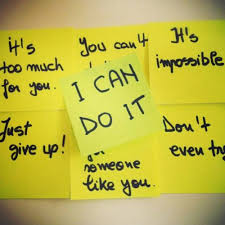 it's
too much
for you.
You can't
It's
impossible
I CAN
DO IT
Just
give up!
someone
like you.
Don't
even try